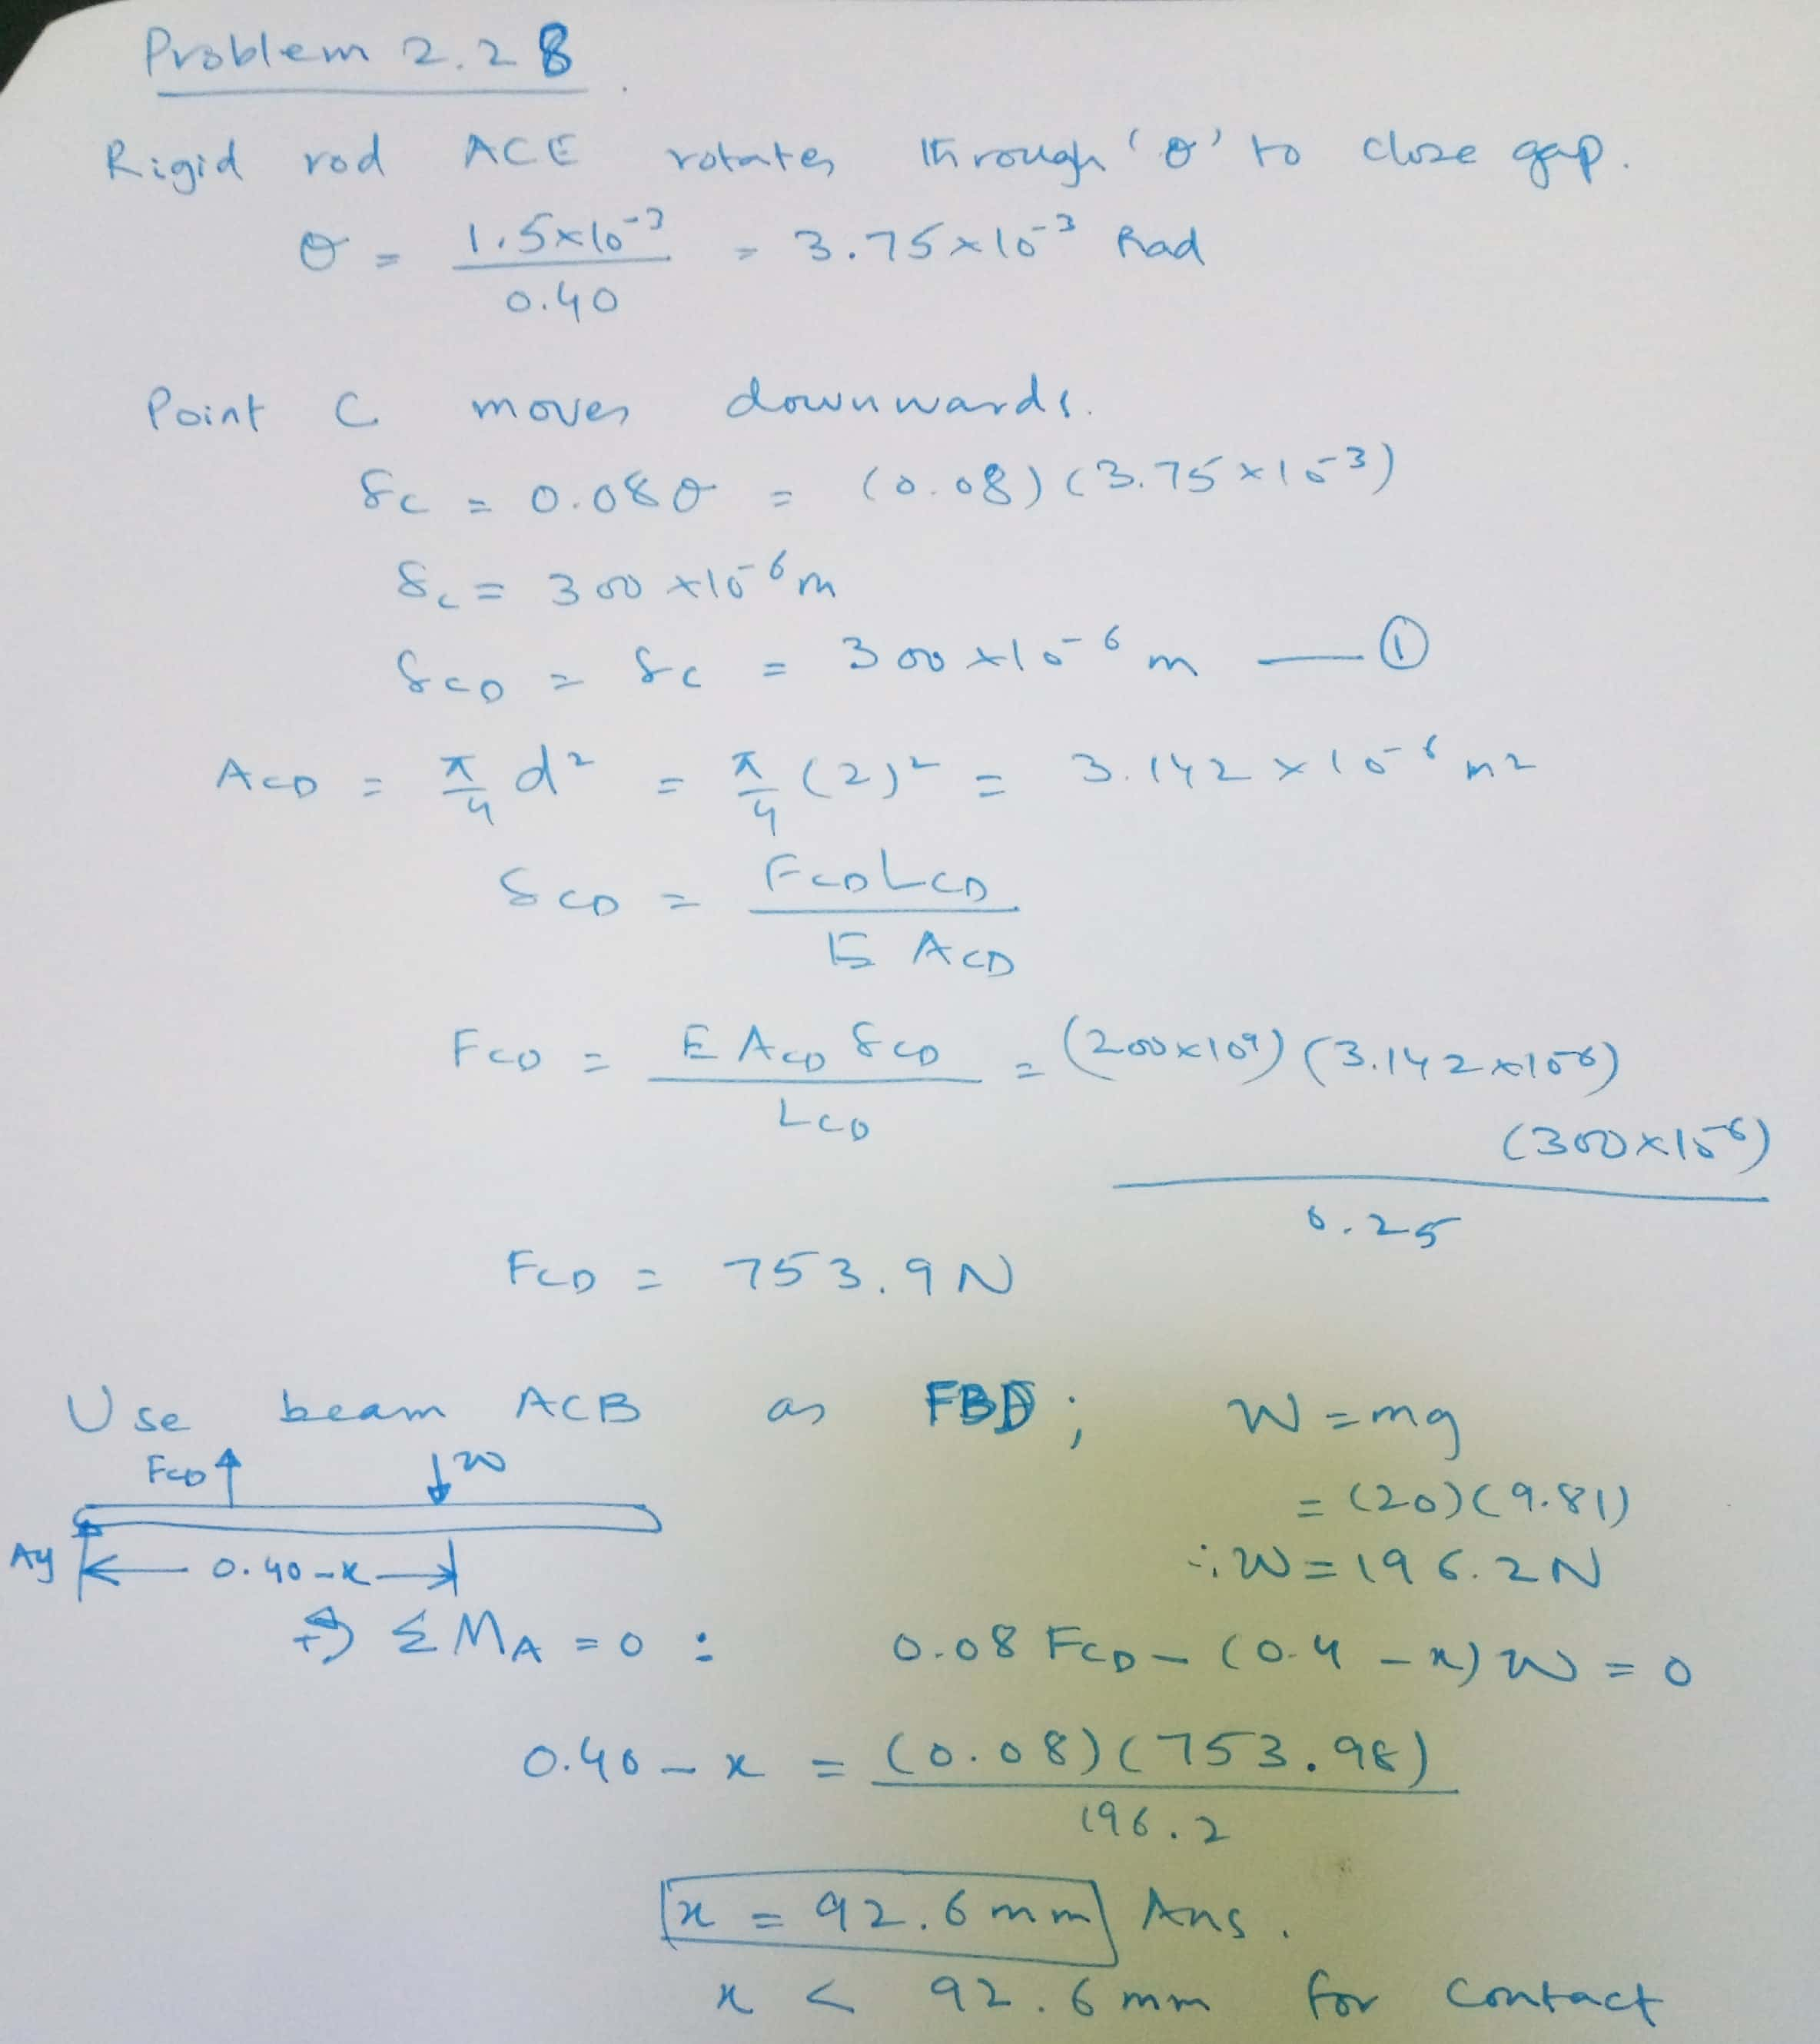 Problem 2.28
Rigid rod ACE rotates through 'θ' to close gap.
θ = 1.5×10⁻³ / 0.40 = 3.75×10⁻³ Rad
Point C moves downwards.
δc = 0.08θ = (0.08)(3.75×10⁻³)
δc = 300×10⁻⁶m
δCD = δc = 300×10⁻⁶ m — ①
ACD = π/4 d² = π/4 (2)² = 3.142×10⁻⁶ m²
δCD = FCD LCD / E ACD
FCD = E ACD δCD / LCD = (200×10⁹)(3.142×10⁻⁶)
(300×10⁻⁶)
0.25
FCD = 753.9N
Use beam ACB as FBD; W=mg
FCD W = (20)(9.81)
Ay 0.40-x ∴W=196.2N
+ ΣMA=0: 0.08 FCD - (0.4-x)W=0
0.40-x = (0.08)(753.98) / 196.2
x = 92.6mm Ans.
x < 92.6mm for contact